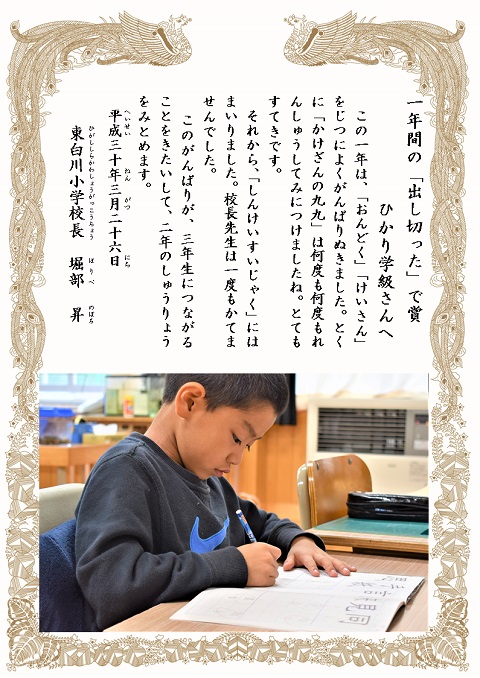 一年間の「出し切った」で賞
ひかり学級さんへ
この一年は、「おんどく」「けいさん」
をじつによくがんばりぬきました。とく
に「かけざんの九九」は何度も何度もれ
んしゅうしてみにつけましたね。とても
すてきです。
それから、「しんけいすいじゃく」には
まいりました。校長先生は一度もかてま
せんでした。
このがんばりが、三年生につながる
ことをきたいして、二年のしゅうりょう
をみとめます。
平成三十年三月二十六日
へいせい ねん がつ にち
東白川小学校長 堀部 昇
ひがししらかわしょうがっこうちょう ほりべ のぼる